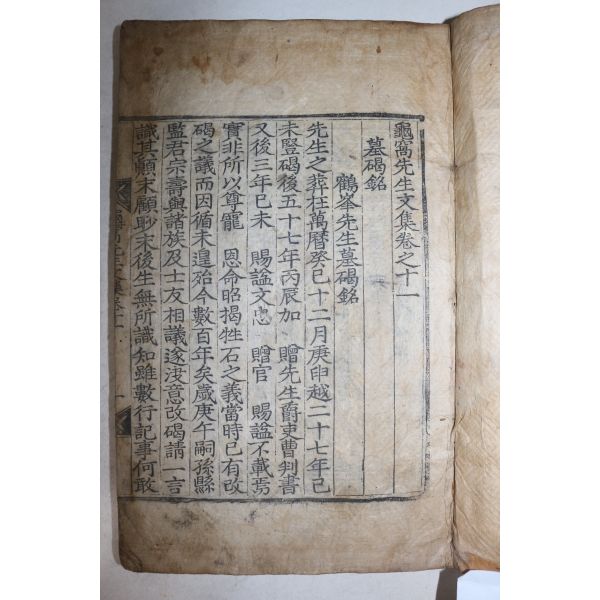 龜窩先生文集卷之十一
墓碣銘
鶴峯先生墓碣銘
先生之葬在萬曆癸巳十二月庚申越二十七年己
未竪碣後五十七年丙辰加 贈先生爵吏曹判書
又後三年己未 賜諡文忠 贈官 賜諡不載焉
實非所以尊寵 恩命昭揭牲石之義當時已有改
碣之議而因循未遑殆今數百年矣歲庚午嗣孫縣
監君宗壽與諸族及士友相議遂决意改碣請一言
識其顚末顧眇末後生無所識知雖數行記事何敢